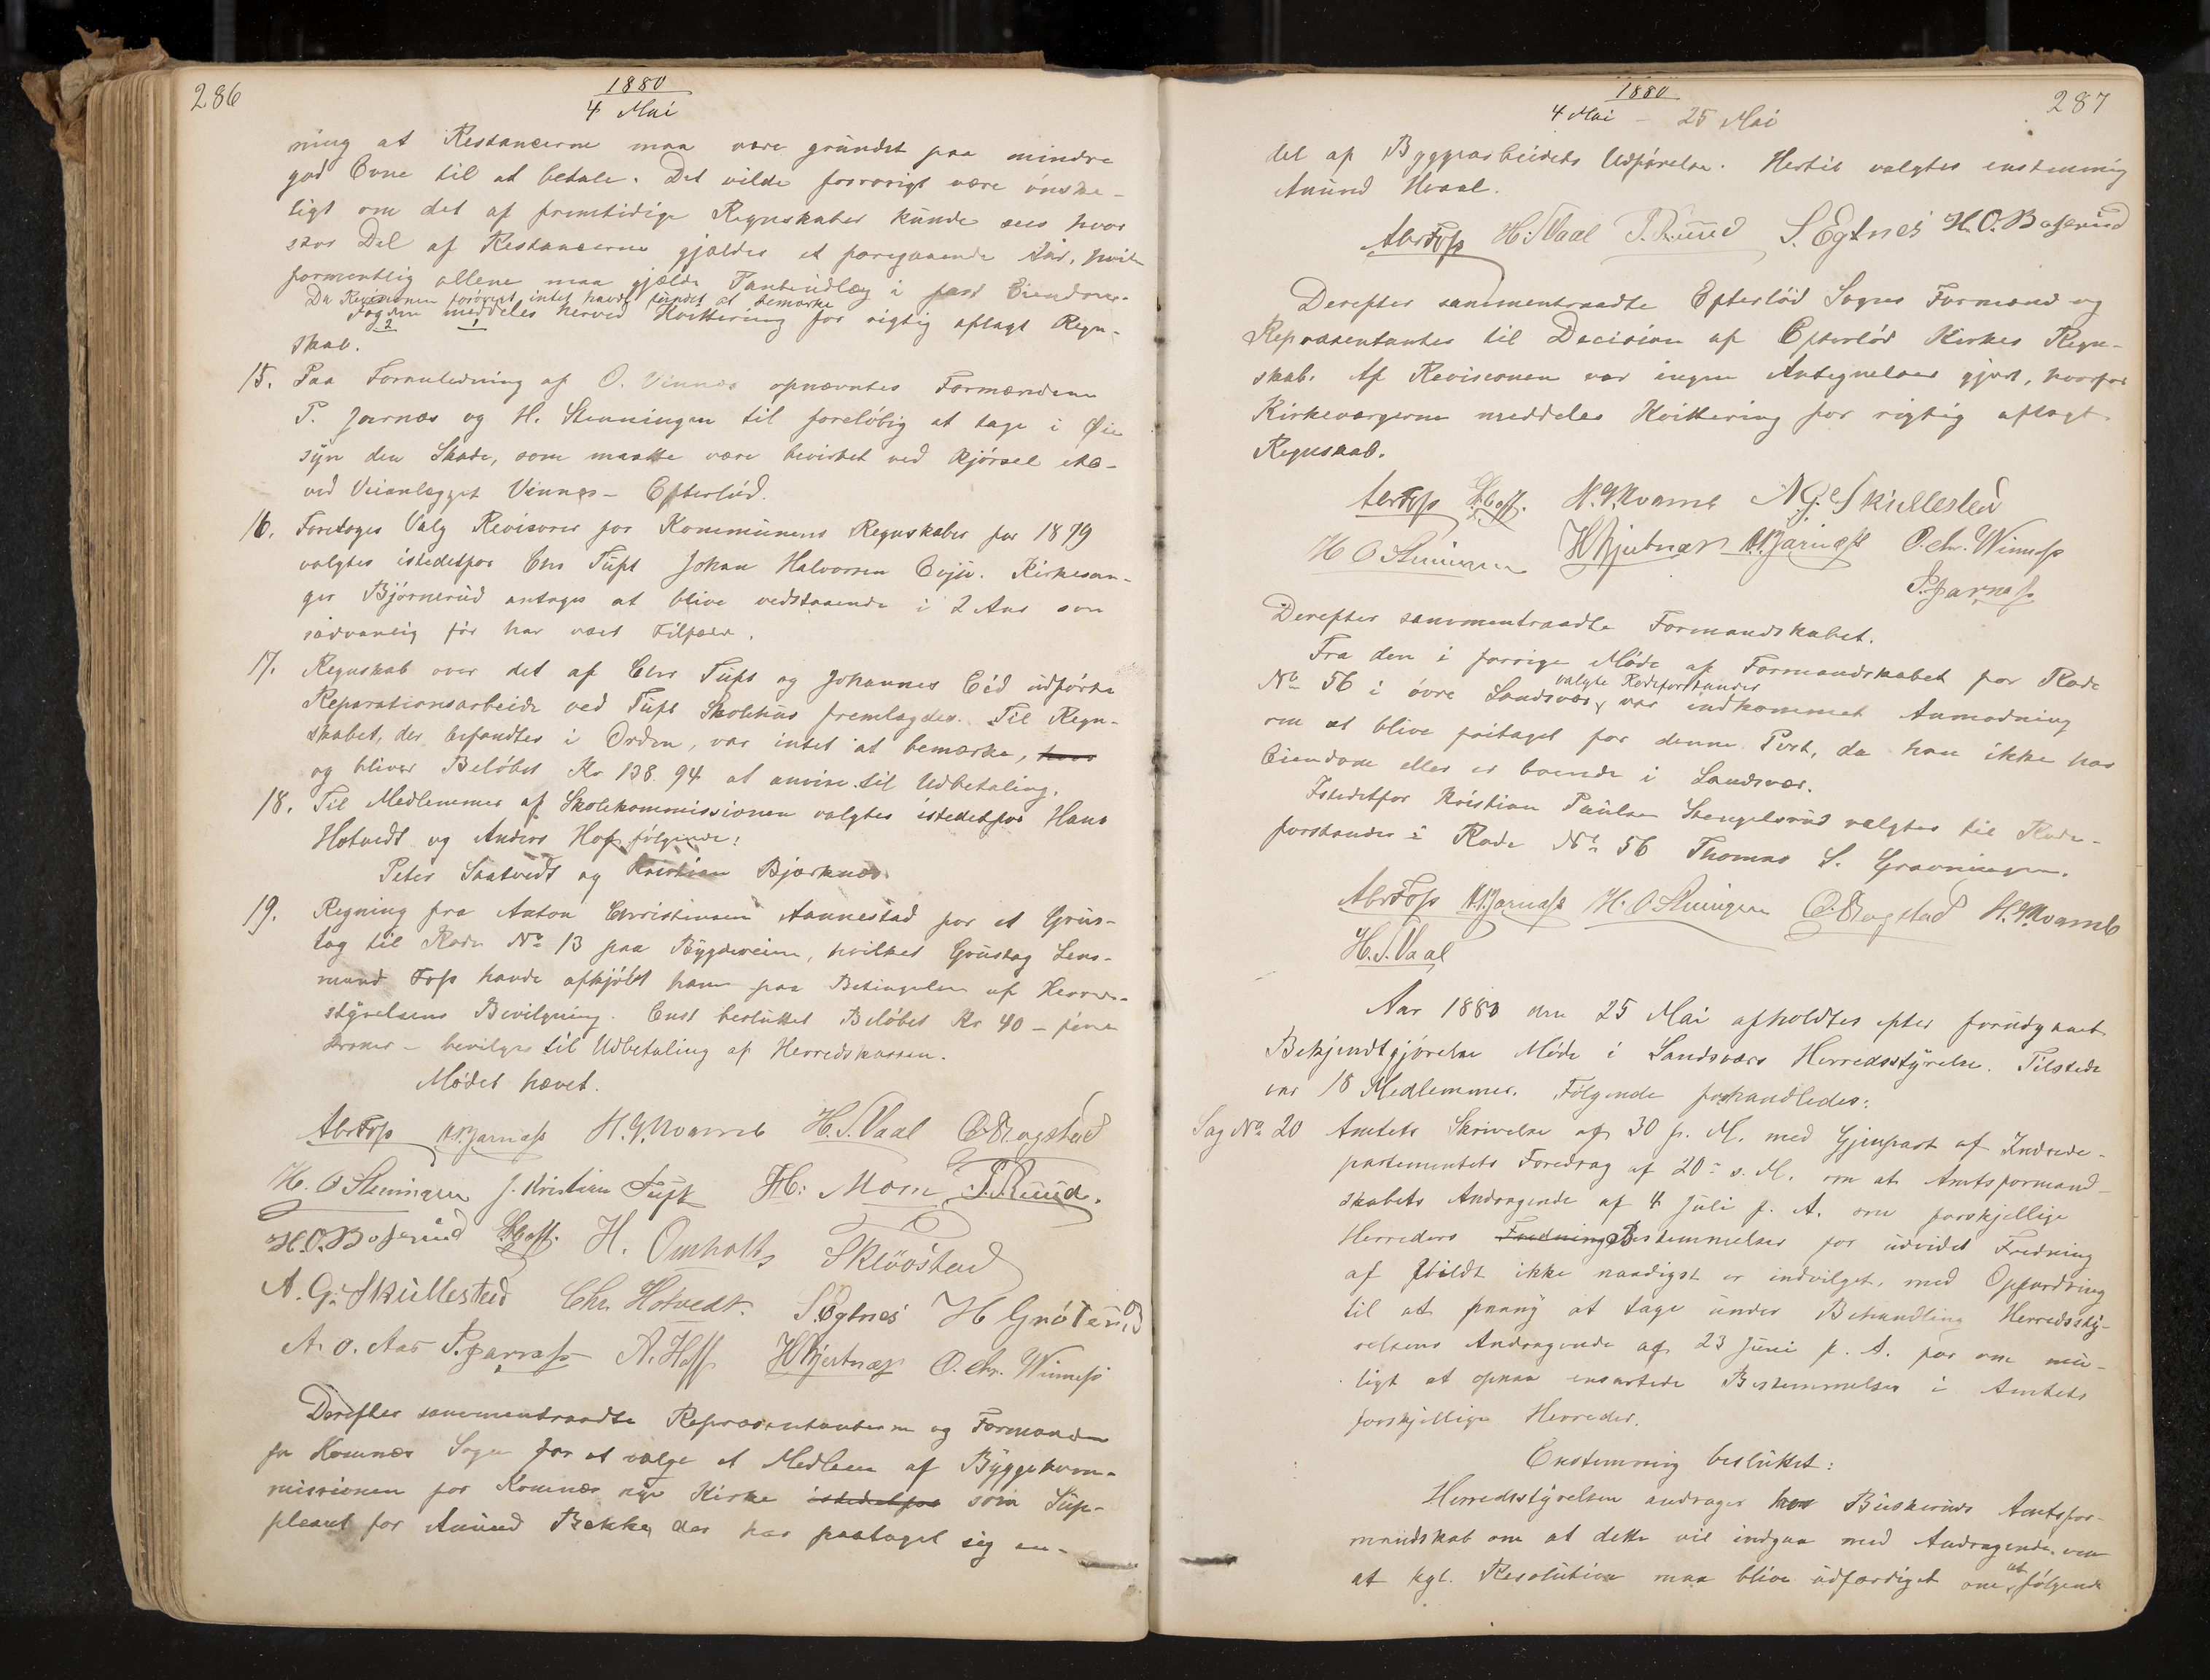 286
1880
4 Mai
ning at Restancerne maa være grundet paa mindre
god Evne til at betale. Det vilde forøvrigt være ønske-
ligt om det af fremtidige Regnskaber kunde sees hvor
stor Del af Restancerne gjælder et foregaaende Aar,
formentlig allene maa gjælde i fast Eiendom.
Da Revisionen forøvrigt intet havde fundet at bemærke
Fogden meddeles herved Kvittering for rigtig aflagt Regn-
2 1
skab.
15. Paa Foranledning af O. Vinnæs opnævntes Formændene
P. Jarnæs og H. Stenningen til foreløbig at tage i Øie
syn den Skade, som maatte være bevirket ved Kjørsel etc-
ved Veianlægget Vinnæs - Efteløod.
16. Foretoges Valg Revisorer for Kommunens Regnskaber for 1879
valgtes istedetfor Chr Tuft Johan Halvorsen Evju. Kirkesan-
ger Bjørnerud antages at blive vedstaaende i 2 Aar som
sædvanlig før har været Tilfælde.
17. Regnskab over det af Chr Tuft og Johannes Eid udførte
Reparationsarbeide ved Tuft Skolehus fremlagdes. Til Regn-
skabet, der befandtes i Orden, var intet at bemærke,
og bliver Beløbet Kr 138.94 at anvise til Udbetaling.
18. Til Medlemmer af Skolekommissionen valgtes istedetfor Hans
Hotvedt og Anders Hoff følgende:
Peter Saatvedt og Kristian Bjørknes
19. Regning fra Anton Christiansen Aannestad for et Grus-
tag til Rode No 13 paa Bygdeveien, hvilket Grustag Lens-
mand Foss havde afkjøbt ham paa Betingelse af Herreds-
styrelsens Bevilgning. Enst besluttet Beløbet Kr 40 - firti
Kroner - bevilges til Udbetaling af Herredskassen.
Mødet hævet.
AbrFoss H. G. Kvamb H. S. Vaal O. Bogstad
H. O Stenningen J. Kristian Tuft H: Moen P. Ruud.
H. O. Boserud H. Omholt Skløôstad
A. G. Skullestad Chr. Hotvedt. S. Egtnes
A. O. Aas P. Jarnæss A. Hoff H Hjertnæs O. Chr. Winness
Derefter sammentraadte Repræsentanterne og Formændene
for Komnæs Sogn for at vælge et Medlem af Byggekom-
missionen for Komnæs nye Kirke istedetfor som Sup-
pleant for Amund Bekke, der har paataget sig en-
287
1880
4 Mai - 25 Mai
del af Byggearbeidets Udførelse. Hertil valgtes enstemmig
Amund Hvaal.
AbrFoss H. S. Vaal P. Ruud S. Egtnes H. O. Boserud
Derefter sammentraadte Efteløod Sogns Formænd og
Repræsentanter til Decision af Efteløod Kirkes Regn-
skab. Af Revisionen var ingen Antegnelser gjort, hvorfor
Kirkeværgerne meddeles Kvittering for rigtig aflagt
Regnskab.
AbrFoss H. G. Kvamb A. G. Skullestad
H O Stenningen H Hjertnæs O. Chr. Winness
P. Jarnæss
Derefter sammentraadte Formandskabet.
Fra den i forrige Møde af Formandskabet for Rode
valgte Rodeforstander
No 56 i øvre Sandsvær, var indkommet Anmodning
om at blive fritaget for denne Post, da han ikke har
Eiendom eller er boende i Sandsvær.
Istedetfor Kristian Paulsen Stengelsrud valgtes til Rode-
forstander i Rode No 56 Thomas S. Gravningen.
AbrFoss H. O Stenningen O. Bogstad H. G. Kvamb
H. S. Vaal
Aar 1880 den 25 Mai afholdtes efter forudgaaet
Bekjendtgjørelse Møde i Sandsværs Herredsstyrelse. Tilstede
var 18 Medlemmer. Følgende forhandledes:
Sag No 20 Amtets Skrivelse af 30 f. M. med Gjenpart af Indrede-
partementets Foredrag af 20de s. M. om at Amtsformand-
skabets Andragende af 4 Juli f. A. om forskjellige
Herreders Frednings Bestemmelser for udvidet Fredning
af Vildt ikke naadigst er indvilget, med Opfordring
til at paany at tage under Behandling Herredssty-
relsens Andragende af 23 Juni f. A. for om mu-
ligt at opnaa ensartede Bestemmelser i Amtets
forskjellige Herreder.
Enstemmig besluttet:
Herredsstyrelsen andrager hos Buskeruds Amtsfor-
mandskab om at dette vil indgaa med Andragende om
at kgl. Resolution maa blive udfærdiget om at følgende